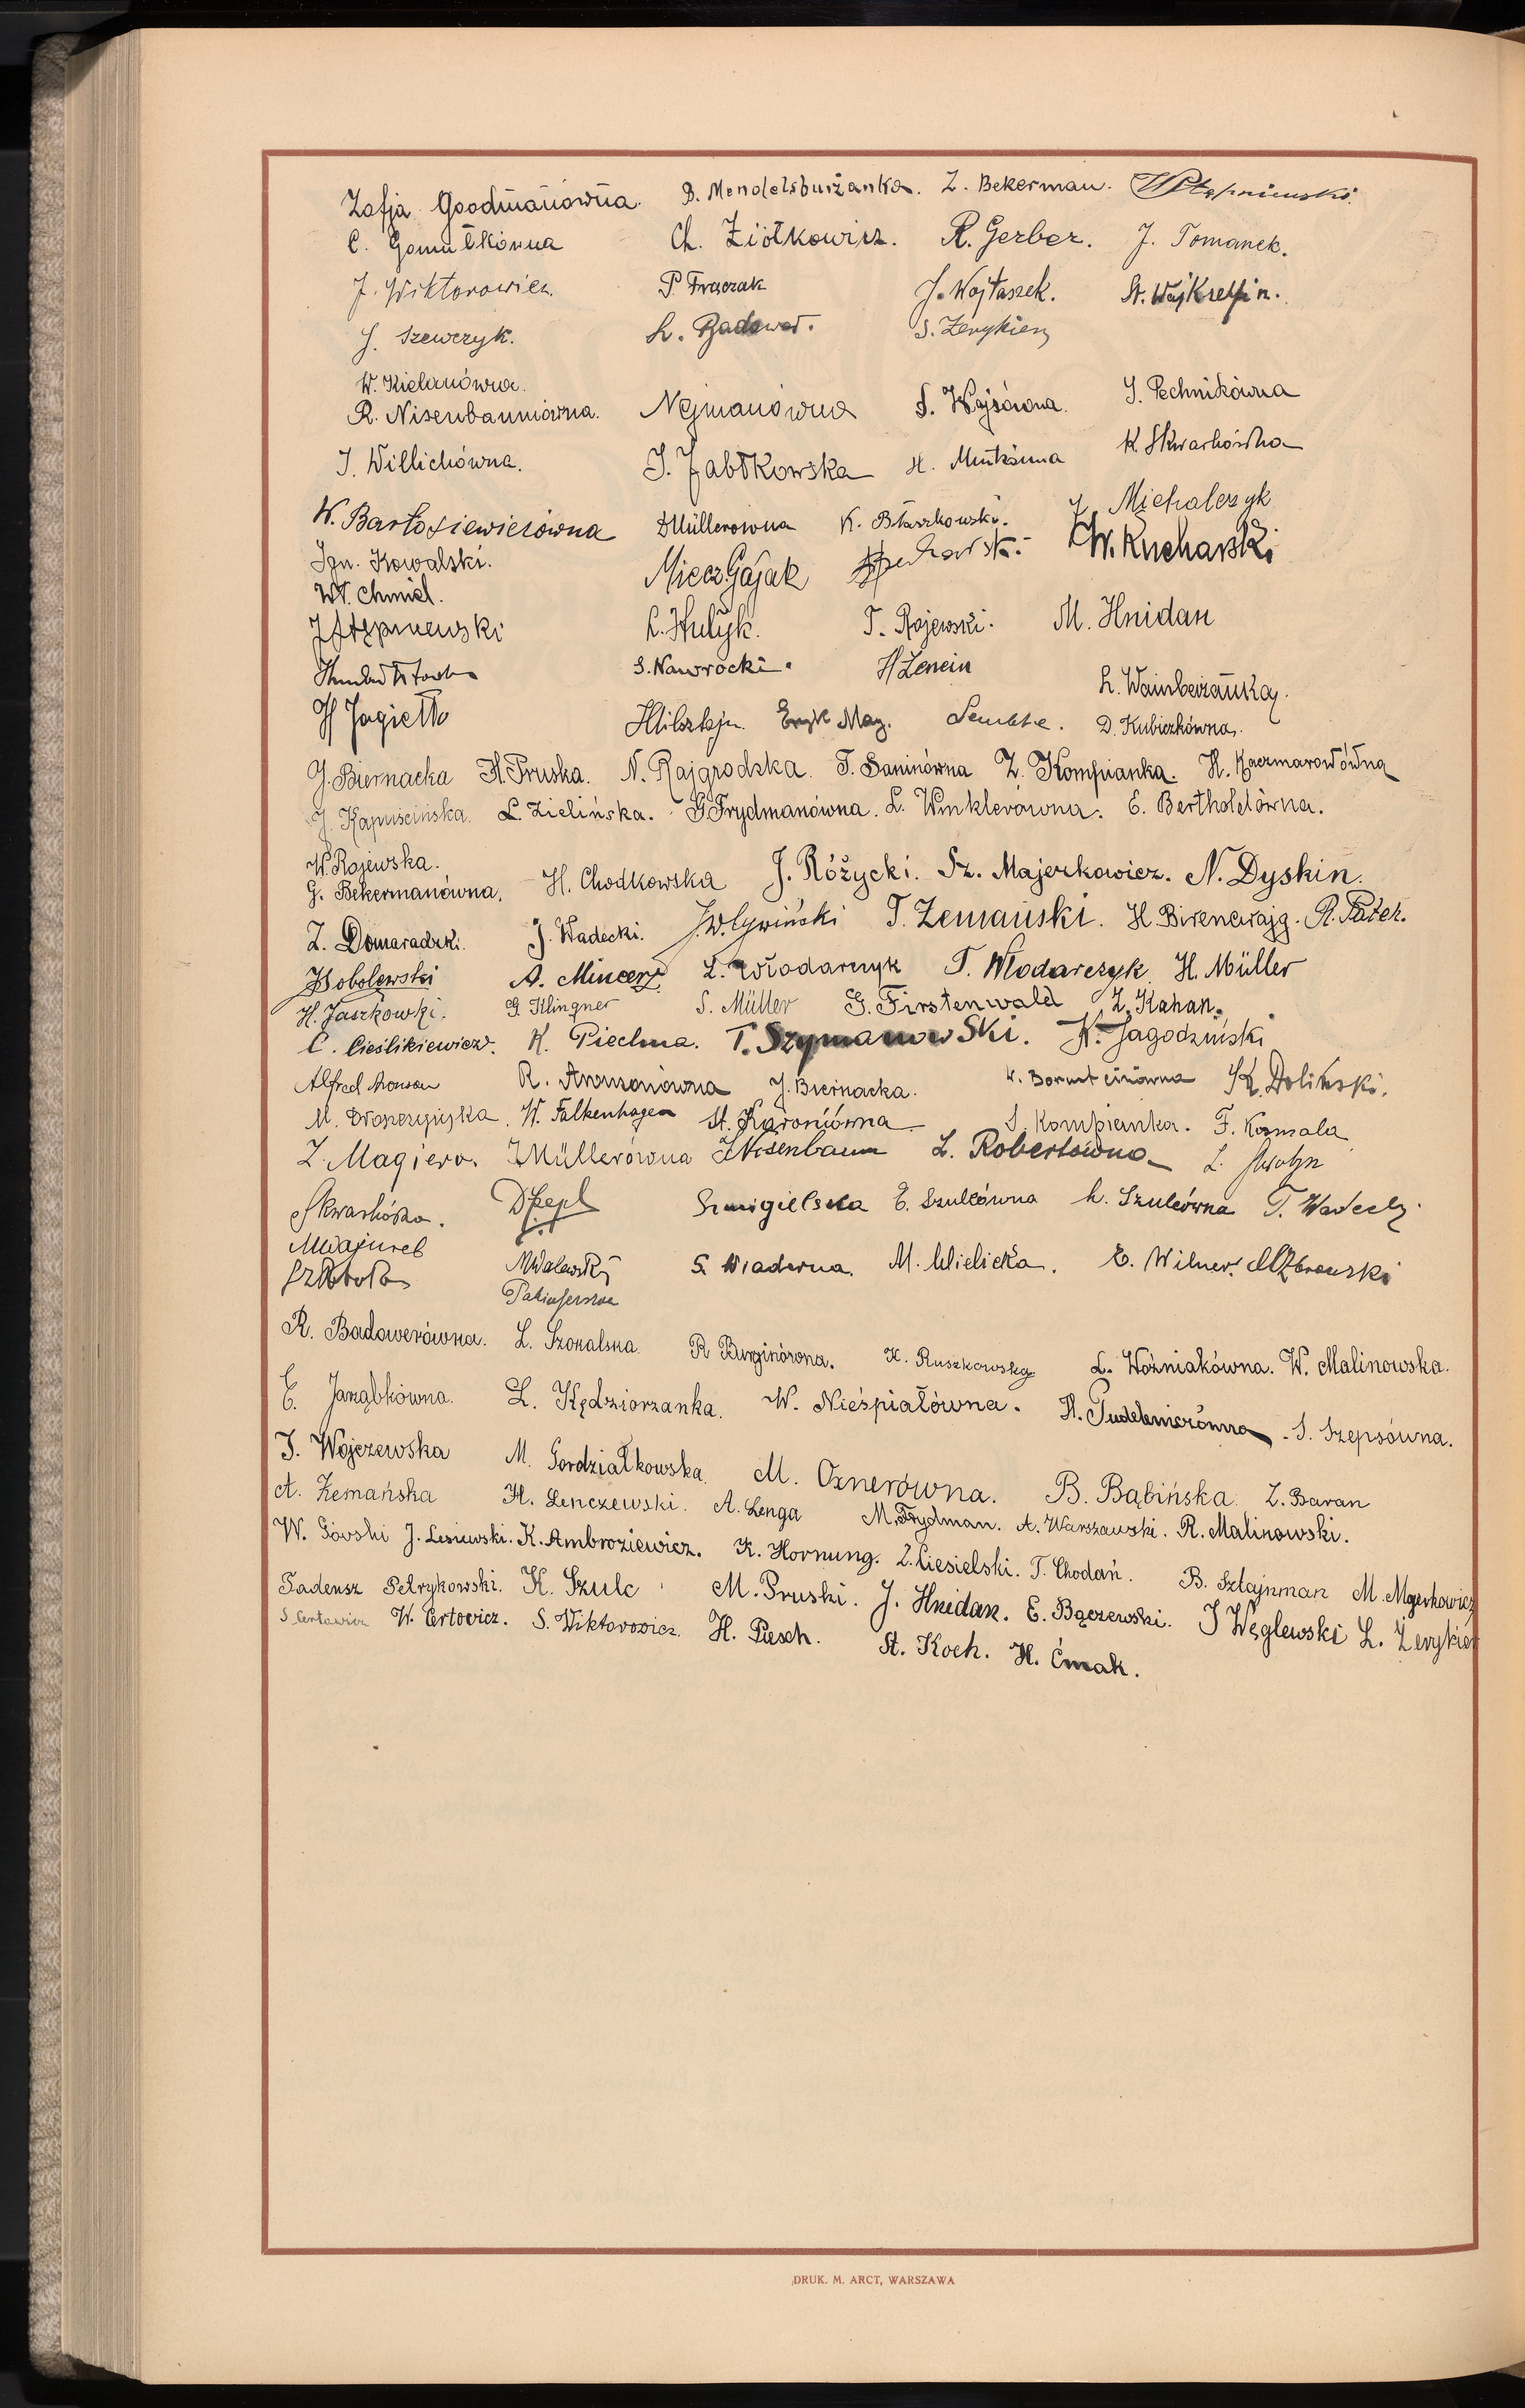 Zofja Goodmanówna. B. Mendelsburżanka. Z. Bekerman. WStępniewski.
C. Gomułkówna Ch. Ziółkowicz. R. Gerber. J. Tomanek.
J. Wiktorowicz. P. Frączak J. Wojtaszek. St. Wojkselfin.
J. Szewczyk. L. Badower. S. Zerykier
W. Kielanówna.
R. Nisenbaumówna. Nejmanówna S. Wajsówna. J. Pechnikówna
J. Willichówna. J. Jabłkowska H. Mintkówna K. Skwarkówna
W. Bartosiewiczówna DMüllerówna K. Błaszkowski. J. Michalczyk
Ign. Kowalski. Miecz. Gajak W. Kucharski
Wł. Chmiel.
JStępniewski L. Hulyk. T. Rajewski. M. Hnidan
S. Nawrocki. HZenein L. Wainberżanka.
H Jagiełło HMilsztejn. Eryk May. D. Kubiczkówna.
J. Biernacka H. Pruska. N. Rajgrodzka. T. Saninówna Z. Kompianka. H. Kaczmarowówna
J. Kapuścińska. L. Zielińska. GFrydmanówna. L. Winklerówna. E. Bertholdówna.
W. Rojewska.
G. Bekermanówna. H. Chodkowska J. Różycki. Sz. Majerkowicz. N. Dyskin.
Z. Domaradzki. J. Wadecki. J. W. Cywiński T. Zemański. H. Birencwajg. R. Pater.
JSobolewski A. Mincer L. Włodarczyk T. Włodarczyk. H. Müller
H. Jaszkowski. G Klingner S. Müller G. Firstenwald Z. Kahan.
C. Cieślikiewicz. K. Piechna. T. Szymanowski. K. Jagodziński
Alfred Aronson R. Aronsonówna J. Biernacka. W. Borusteinówna K. Doliński.
M. Dwaszczyńska. W. Falkenhagen St. Karoniówna S. Kompianka. F. Kosmala
Z. Magiera. JMüllerówna JNisenbaum L. Robertówna
Skwarkówna. Smigielska E. Szulcówna L. Szulcówna T. Wadecki
MWajnreb
MWalewski S. Wiaderna. M. Wielicka. E. Wilner.
R. Badowerówna. L. Szokalska. R Burginówna. K. Ruszkowska L. Woźniakówna. W. Malinowska.
E. Jarząbkówna. L. Kędziorzanka. W. Nieśpiałówna. H. Pudelewiczówna. S. Szepsówna.
J. Wojczewska M. Gordziałkowska. M. Oznerówna. B. Bąbińska. Z. Baran
A. Zemańska H. Lenczewski. A. Lenga M. Frydman. A. Warszawski. R. Malinowski.
W. Górski J. Lesiewski. K. Ambroziewicz. K. Hornung. Z. Ciesielski. T. Chodań. B. Sztajnman M. Majerkowicz
Tadeusz Petrykowski. K. Szulc M. Pruski. J. Hnidan. E. Bączewski. J Węglewski L. Zerykier
S Certowicz W. Certowicz. S. Wiktorowicz. H. Piesch. St. Koch. H. Ćmak.
DRUK. M. ARCT, WARSZAWA